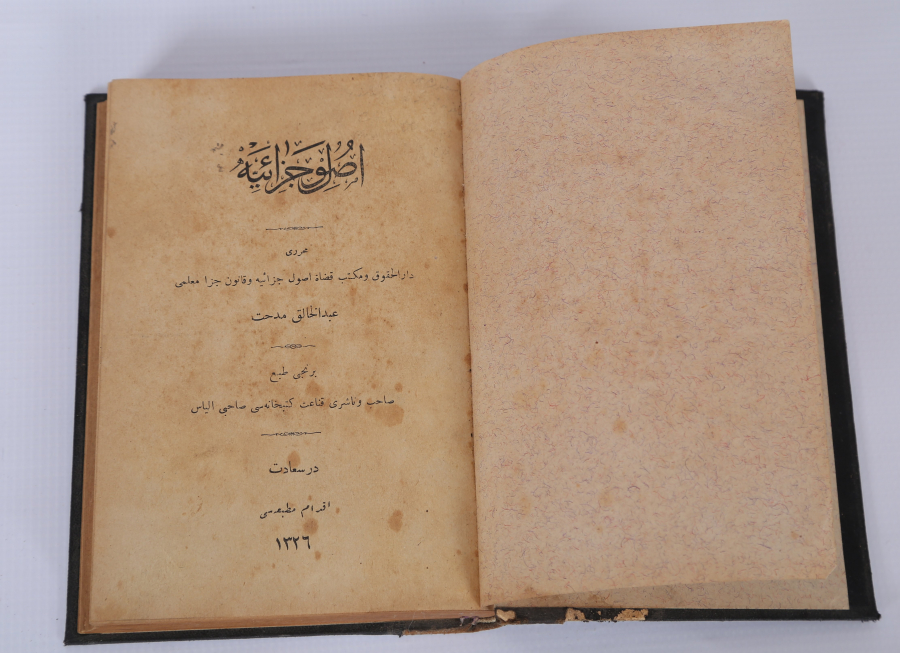 اصول جزائیه
محرری
دار الحقوق و مکتب قضاة اصول جزائیه و قانون جزا معلمی
عبدالخالق مدحت
برنجی طبع
صاحب و ناشری قناعت کتبخانه‌سی صاحبی الیاس
در سعادت
اقدام مطبعه‌سی
١٣٢٦